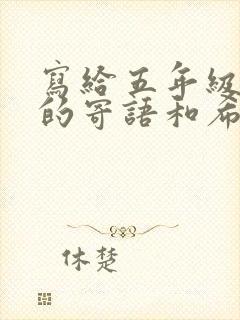 寫給五年級
的寄語和希
休楚